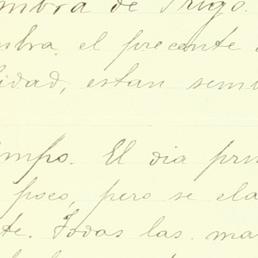 mbra de Trigo.
mbra, el precente
lidad, estan sem
mpo. El dia pri
poco, pero se ela
te. Todas las ma